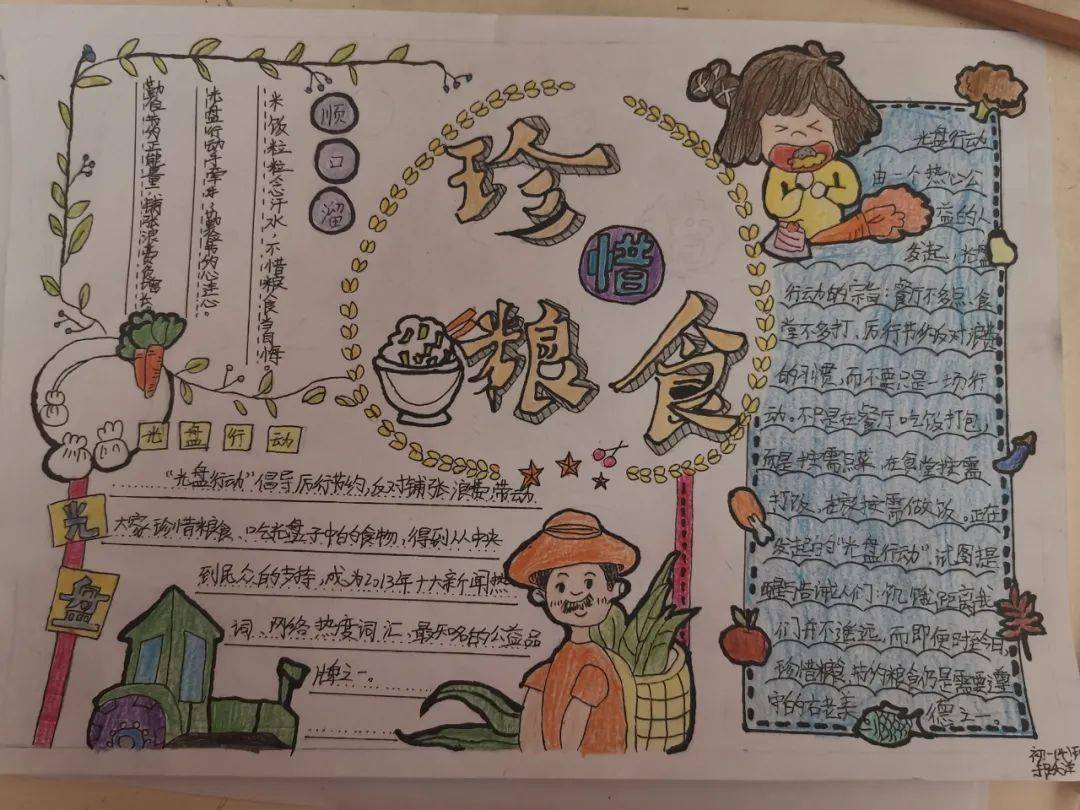 珍
惜
粮食
顺
口
溜
米饭粒粒念汗水，不惜粮食当自悔。
光盘行动手牵手，勤俭节约心连心。
勤俭节约正能量，铺张浪费负增长
光盘行动
光
盘
“光盘行动”倡导厉行节约，反对铺张浪费，带动
大家珍惜粮食、吃光盘子中的食物，得到从中央
到民众的支持，成为2013年十大新闻热
词、网络热度词汇，最知名的公益品
牌之一。
光盘行动
由一个热心公
益的人
发起，光盘
行动的宗旨：餐厅不多点、食
堂不多打，厉行节约反对浪费
的习惯，而不要只是一场行
动。不只是在餐厅吃饭打包，
而是按需点菜，在食堂按需
打饭，在家按需做饭。正在
发起的的“光盘行动”，试图提
醒与告诫人们：饥饿距离我
们并不遥远，而即便时至今日，
珍惜粮食，节约粮食仍是需要遵
守的古老美
德之一。
初一(4)班